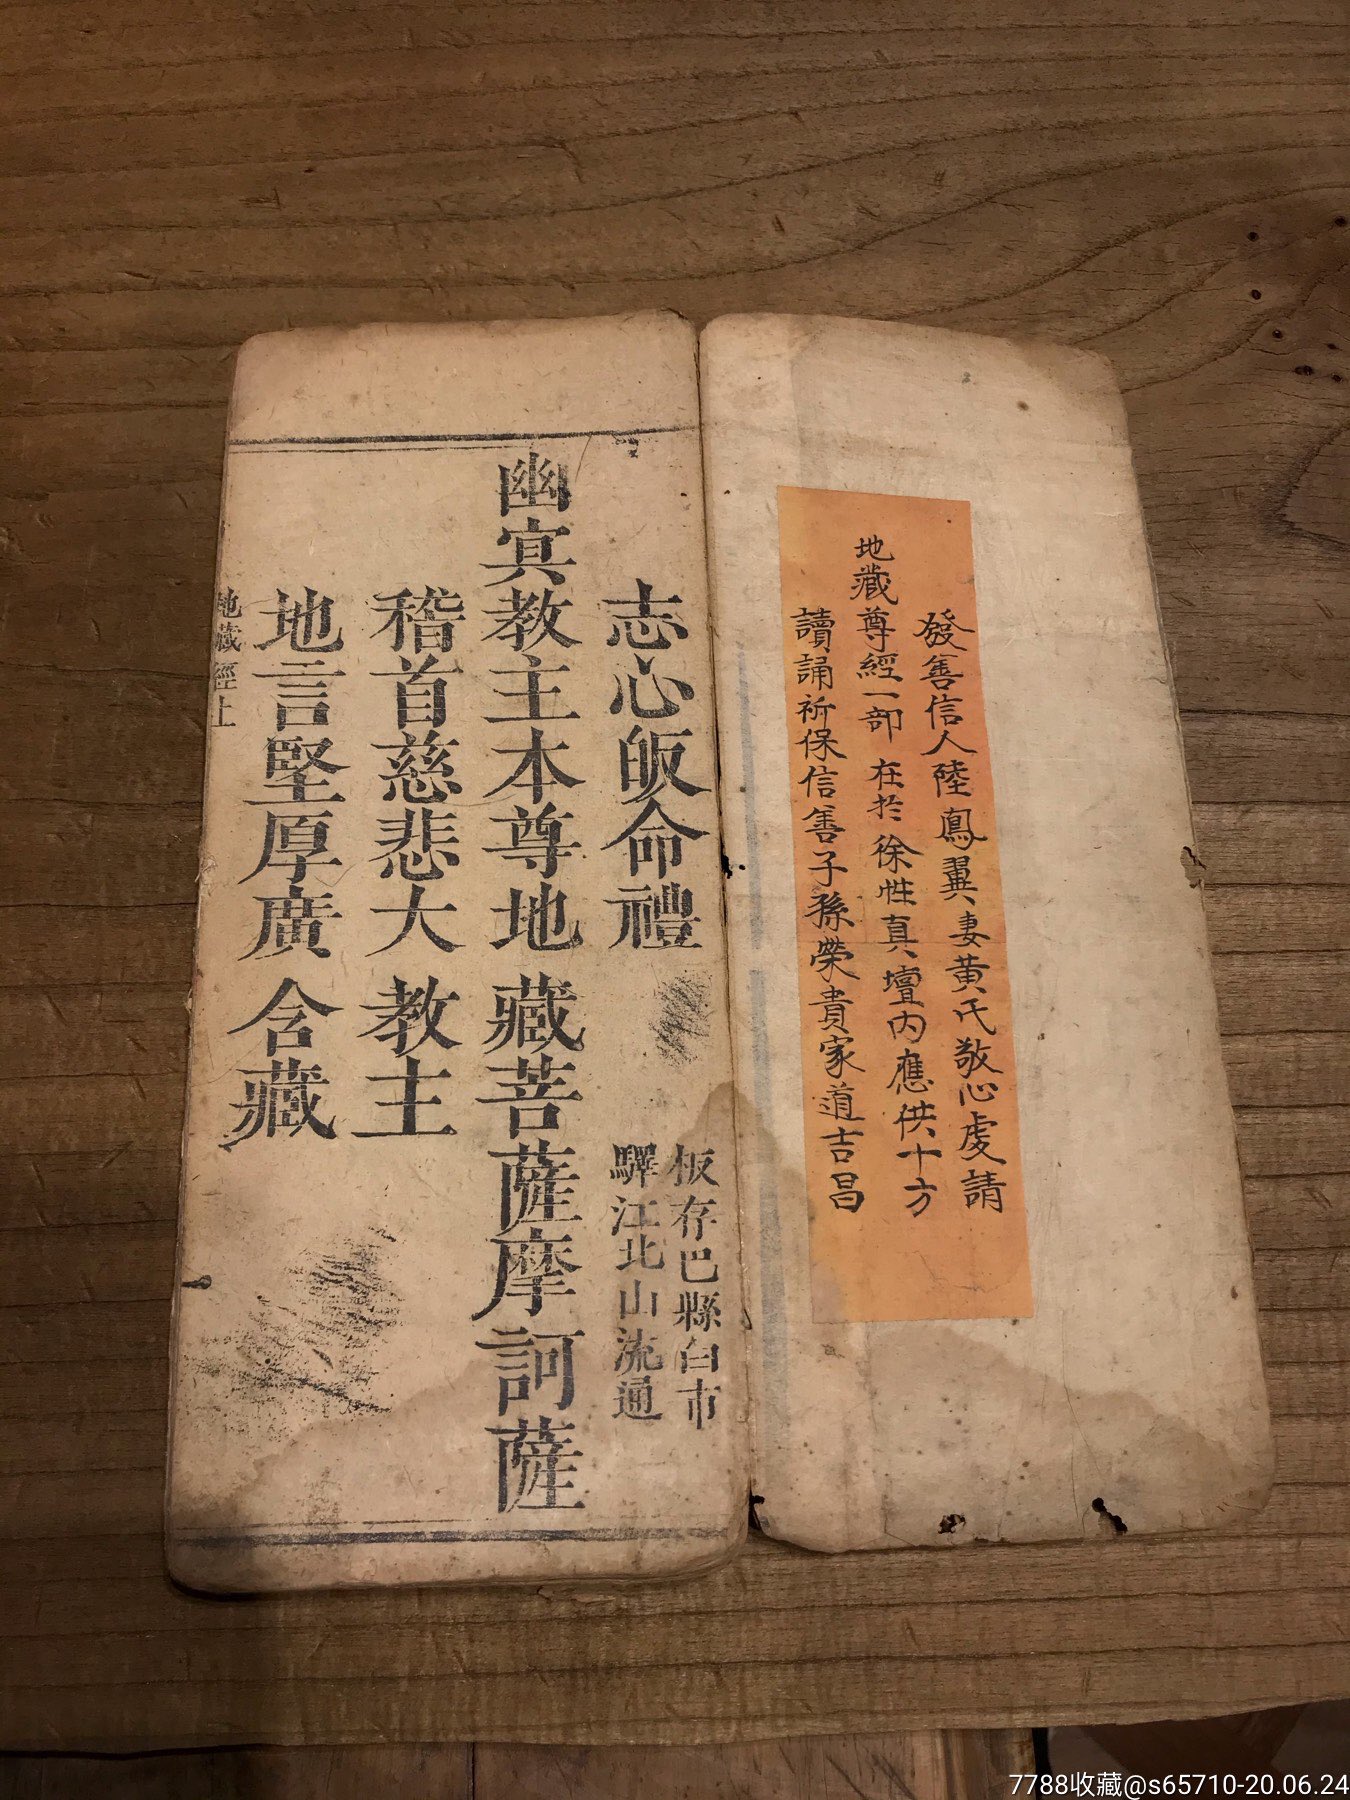 發善信人陸鳳翼妻黃氏敬心虔請
地藏尊經一部在於徐性真壇內應供十方
讀誦祈保信善子孫榮貴家道吉昌
志心皈命禮
板存巴縣白市
驛江北山流通
幽冥教主本尊地藏菩薩摩訶薩
稽首慈悲大教主
地言堅厚廣含藏
地藏經上
7788收藏@s65710-20.06.24